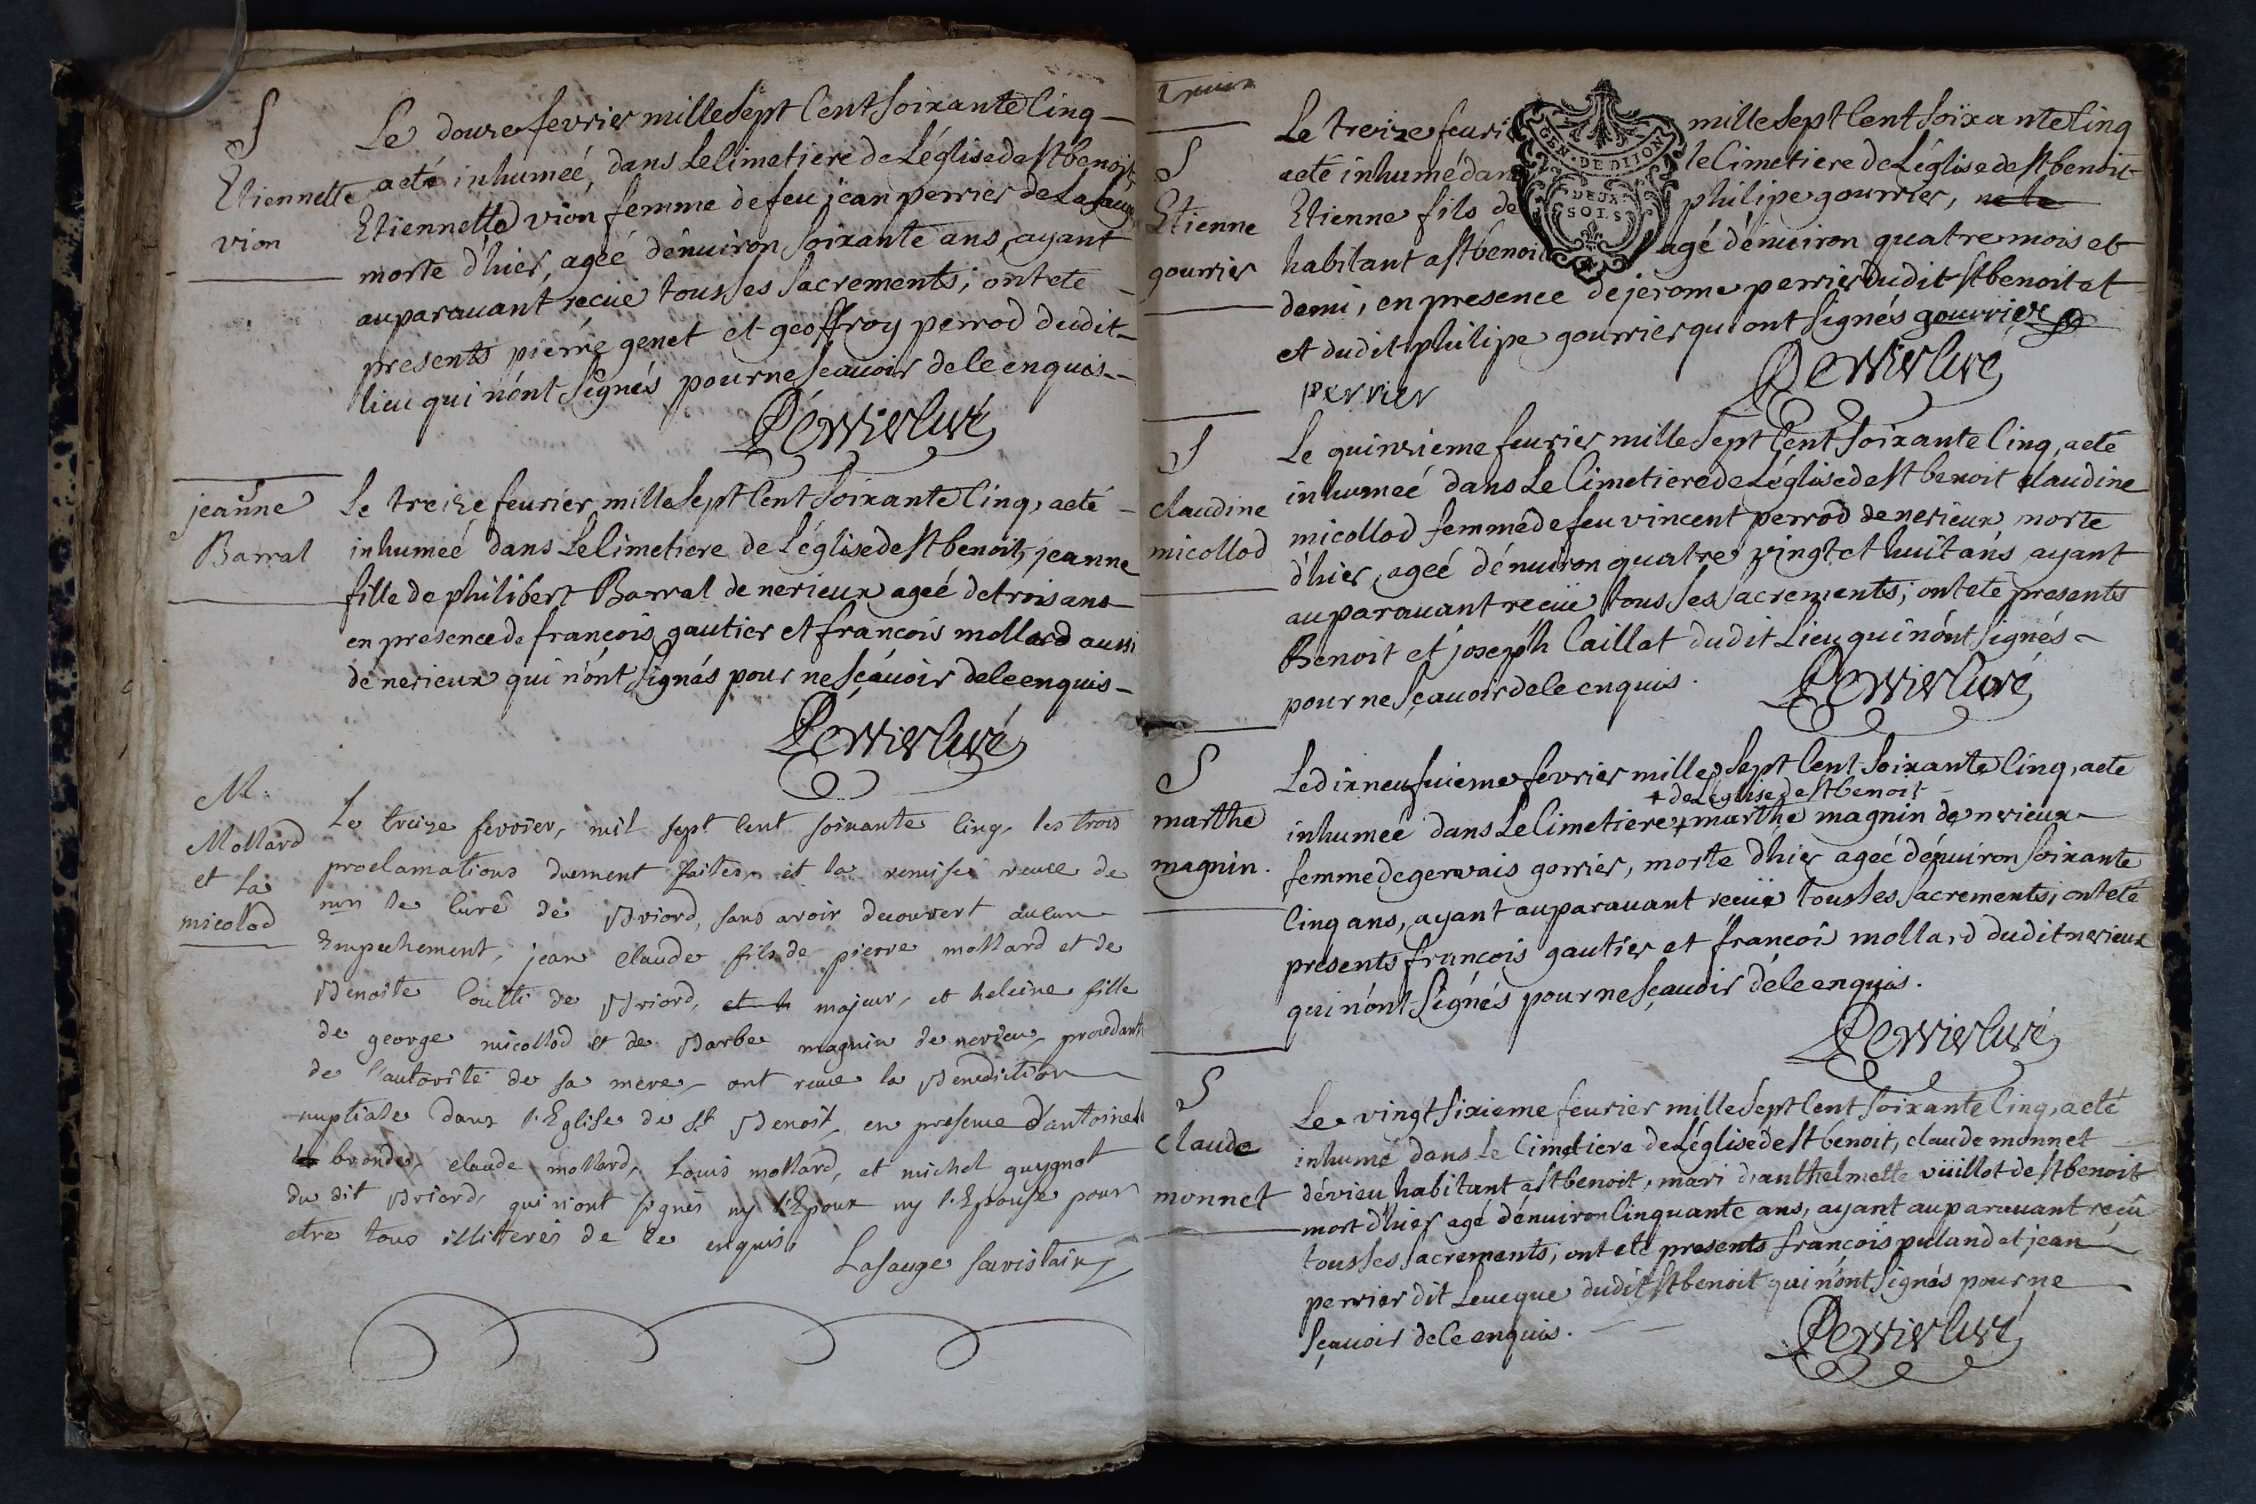 S
Etiennette
vion
Le douze fevrier mille sept Cent soixante Cinq
a eté inhumeé, dans Le Cimetiere de L'église de st benoit,
Etiennette vion femme de feu jean perrier de La
morte d'hier, ageé d'enuiron soixante ans, ayant
auparauant recüe tous ses sacrements; ont eté
presents pierre genet et geoffroy perrod dudit
lieu qui n'ont signés pour ne sçauoir de le enquis
Perrier Curé
S
jeanne
Barral
Le treize feurier mille sept Cent soixante Cinq, a eté
inhumeé dans Le Cimetiere de L'église de st benoit, jeanne
fille de philibert Barral de nerieux ageé de trois ans
en presence de françois gautier et françois mollard aussi
de nerieux qui n'ont signés pour ne sçauoir de le enquis
Perrier Curé
M.
Mollard
et La
micolod
Le treize fevrier, mil sept Cent soixante Cinq, les trois
proclamations duement faites, et la remise reçue de
mr le Curé de Briord, sans avoir decouvert aucun
Empechement, jean Claude fils de pierre mollard et de
Benoite de Briord, et majeur, et heleine fille
de george micollod et de Barbe magnin de nerieu, procedant
de l'autorité de sa mere, ont recue la Benediction
nuptiale dans l'Eglise de st Benoit, en presence d'antoine
claude mollard, Louis mollard, et michel guygnot
du dit Briord, qui n'ont signés ny l'Epoux ny l'Epouse pour
etre tous illiterés de ce enquis
Lasauge
S
Etienne
gourrier
Le treize feurier mille sept Cent soixante Cinq
a eté inhumé dans le Cimetiere de L'église de st benoit
Etienne fils de philipe gourrier, ne le
habitant a st benoit agé d'enuiron quatre mois et
demi, en presence de jerome perrier dudit st benoit et
et dudit philipe gourrier qui ont signés gourrier
perrier
Perrier Curé
GEN. DE DIJON
DEUX
SOLS
S
claudine
micollod
Le quinzieme feurier mille sept Cent soixante Cinq, a eté
inhumeé dans Le Cimetiere de L'église de st benoit claudine
micollod femme de feu vincent perrod de nerieux morte
d'hier, ageé d'enuiron quatre vingt et huit ans, ayant
auparauant recüe tous ses sacrements; ont eté presents
Benoit et joseph Caillat dudit Lieu qui n'ont signés
pour ne sçauoir de le enquis.
Perrier Curé
S
marthe
magnin.
Le dix neufuieme fevrier mille sept Cent soixante Cinq, a eté
+ de L'église de st benoit
inhumeé dans Le Cimetiere + marthe magnin de nerieux
femme de gervais gorrier, morte d'hier ageé d'enuiron soixante
Cinq ans, ayant auparauant recüe tous les sacrements; ont eté
presents françois gautier et françoi mollard dudit nerieux
qui n'ont signés pour ne sçauoir de le enquis.
Perrier Curé
S
claude
monnet
Le vingt sixieme feurier mille sept Cent soixante Cinq, a eté
inhumé dans Le Cimetiere de L'église de st benoit, claude monnet
d'évieu habitant a st benoit, mari d'anthelmette vüillot de st benoit
mort d'hier agé d'enuiron Cinquante ans, ayant auparauant reçu
tous ses sacrements; ont eté presents françois puland et jean
perrier dit Leueque dudit st benoit qui n'ont signés pour ne
sçauoir de le enquis.
Perrier Curé